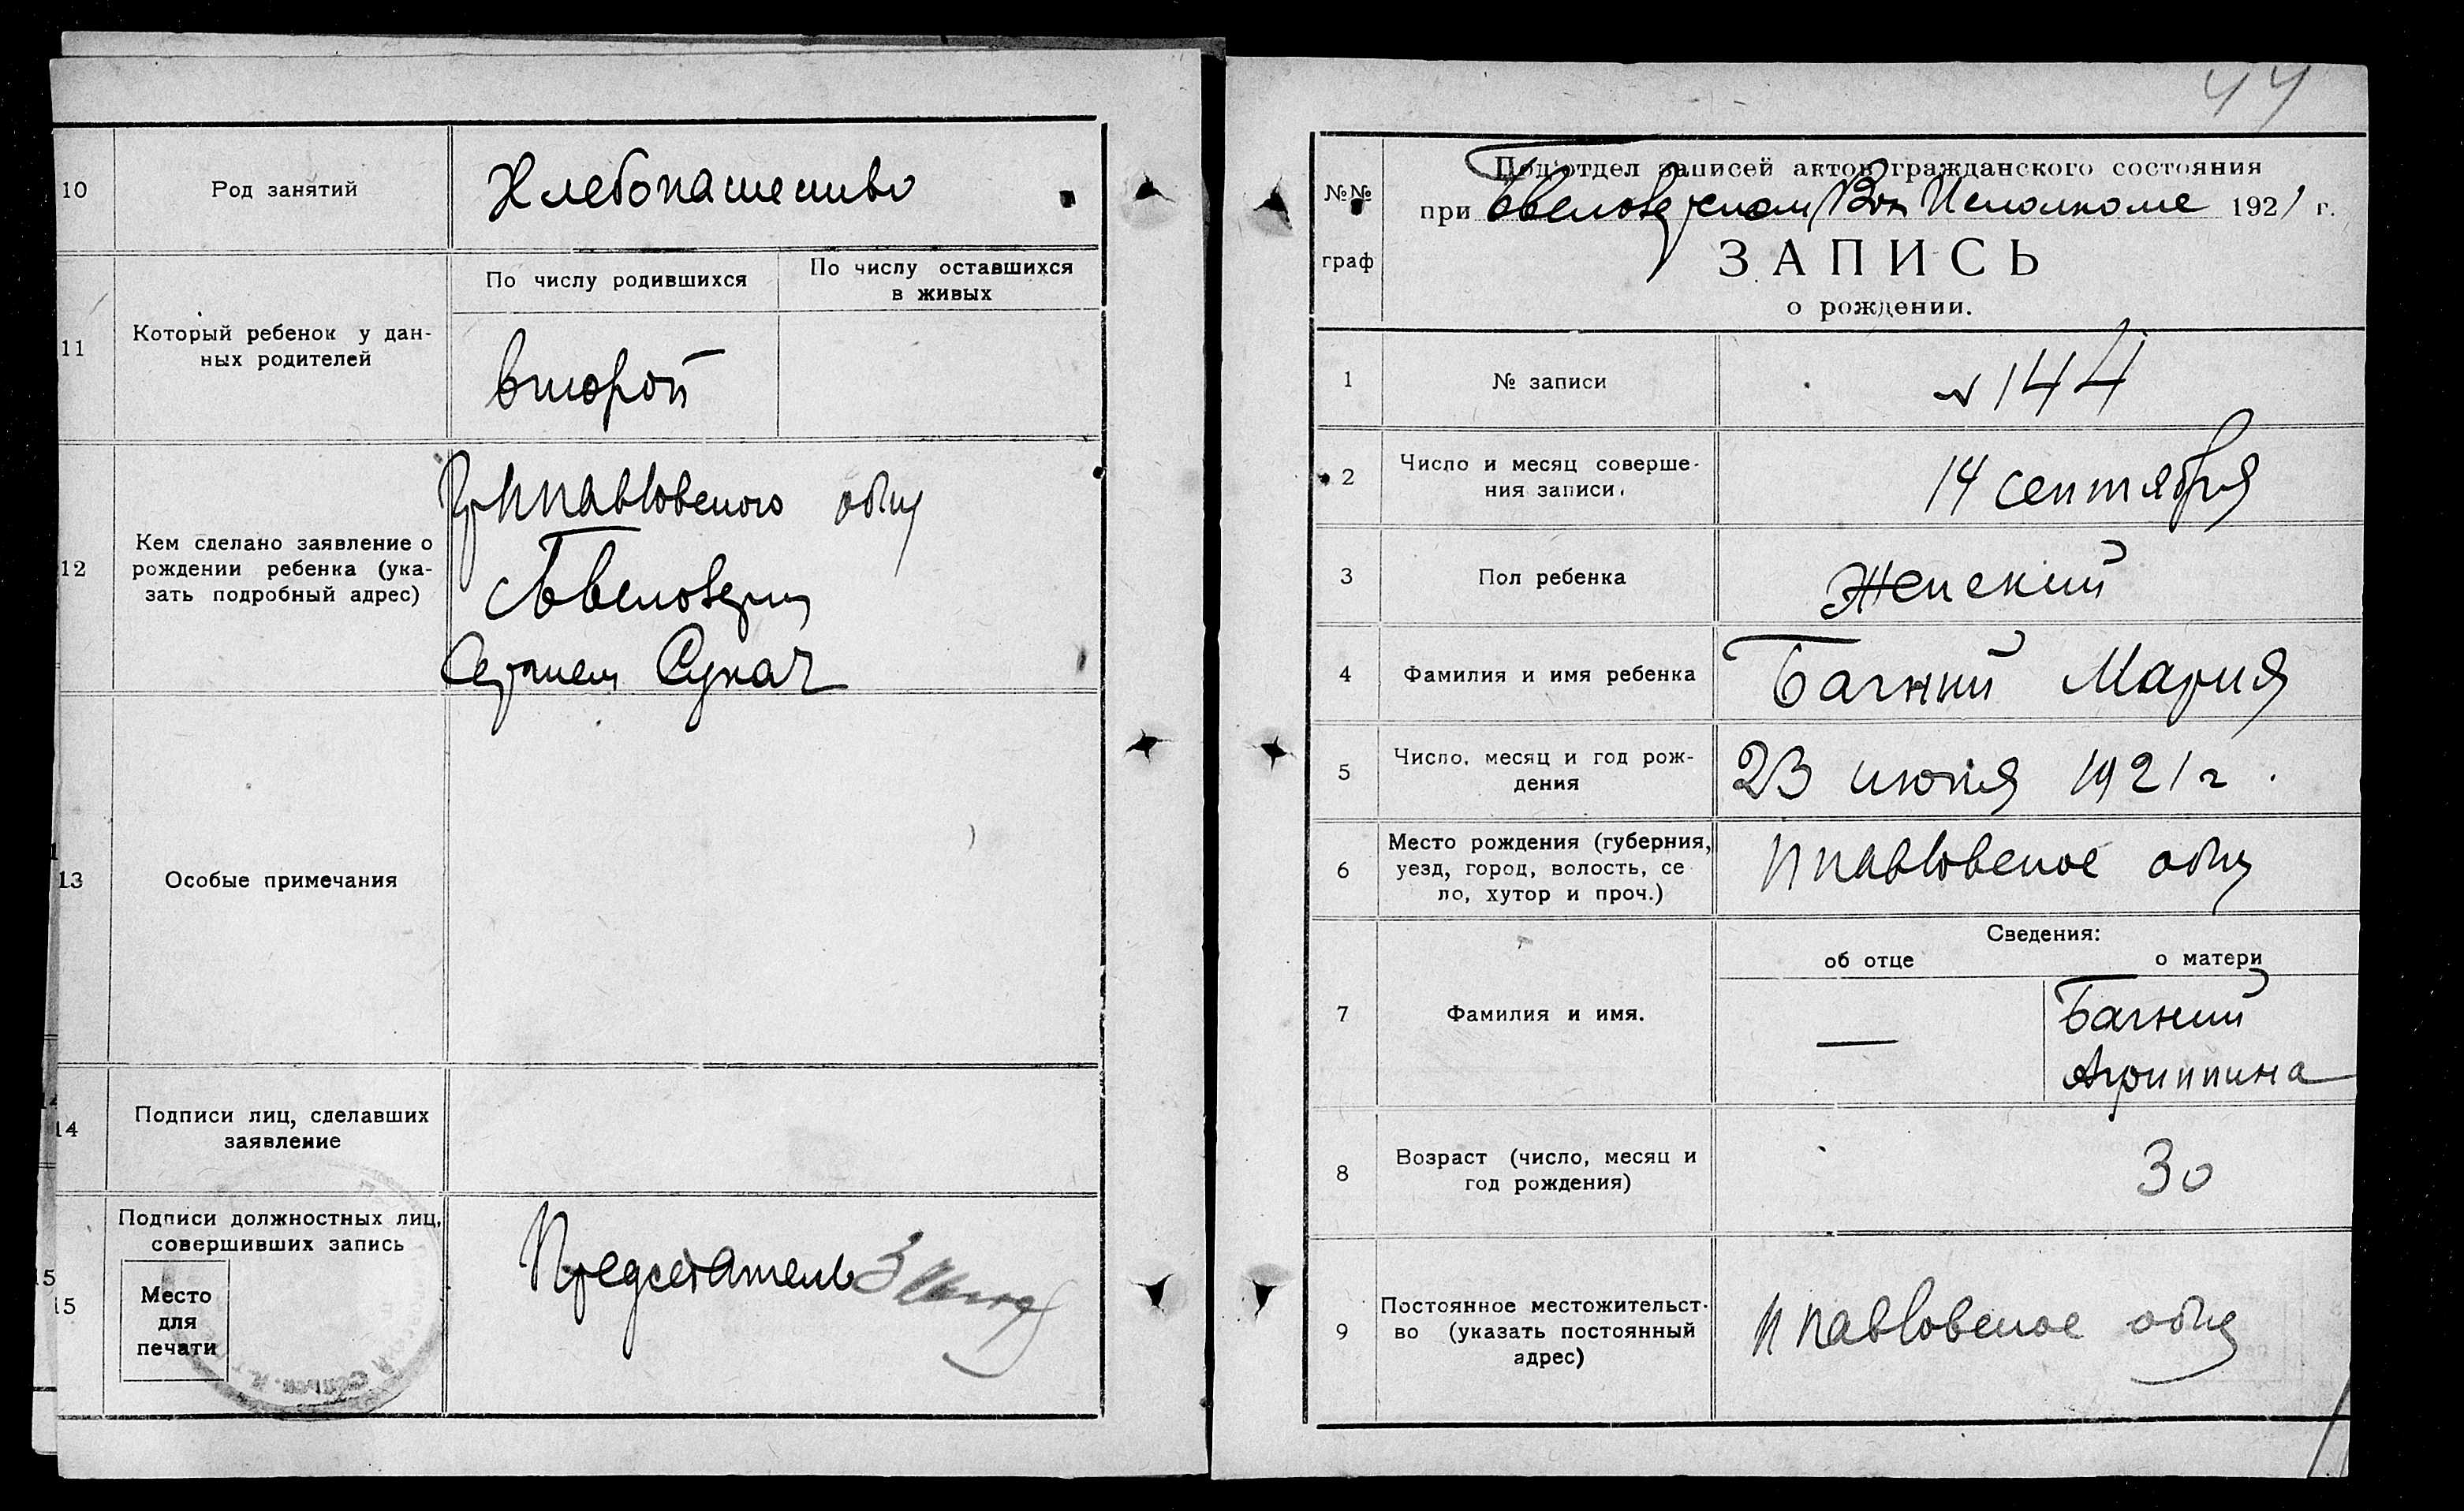 10
Род занятий
Хлебопашество
11
Который ребенок у дан-
ных родителей
По числу родившихся
По числу оставшихся
в живых
второй
12
Кем сделано заявление о
рождении ребенка (ука-
зать подробный адрес)
общ
Сукач
13
Особые примечания
14
Подписи лиц, сделавших
заявление
15
Подписи должностных лиц,
совершивших запись
Место
для
печати
Председатель
44
№№
граф
Под'отдел записей актов гражданского состояния
при Исполкоме 1921 г.
ЗАПИСЬ
о рождении.
1
№ записи
№ 144
2
Число и месяц соверше-
ния записи.
14 сентября
3
Пол ребенка
Женский
4
Фамилия и имя ребенка
Багний Мария
5
Число, месяц и год рож-
дения
23 1921 г.
6
Место рождения (губерния,
уезд, город, волость, се
ло, хутор и проч.)
Ппавловское общ
Сведения:
об отце
о матери
7
Фамилия и имя.
—
Багний
Агриппина
8
Возраст (число, месяц и
год рождения)
30
9
Постоянное местожительст-
во (указать постоянный
адрес)
Ппавловское общ